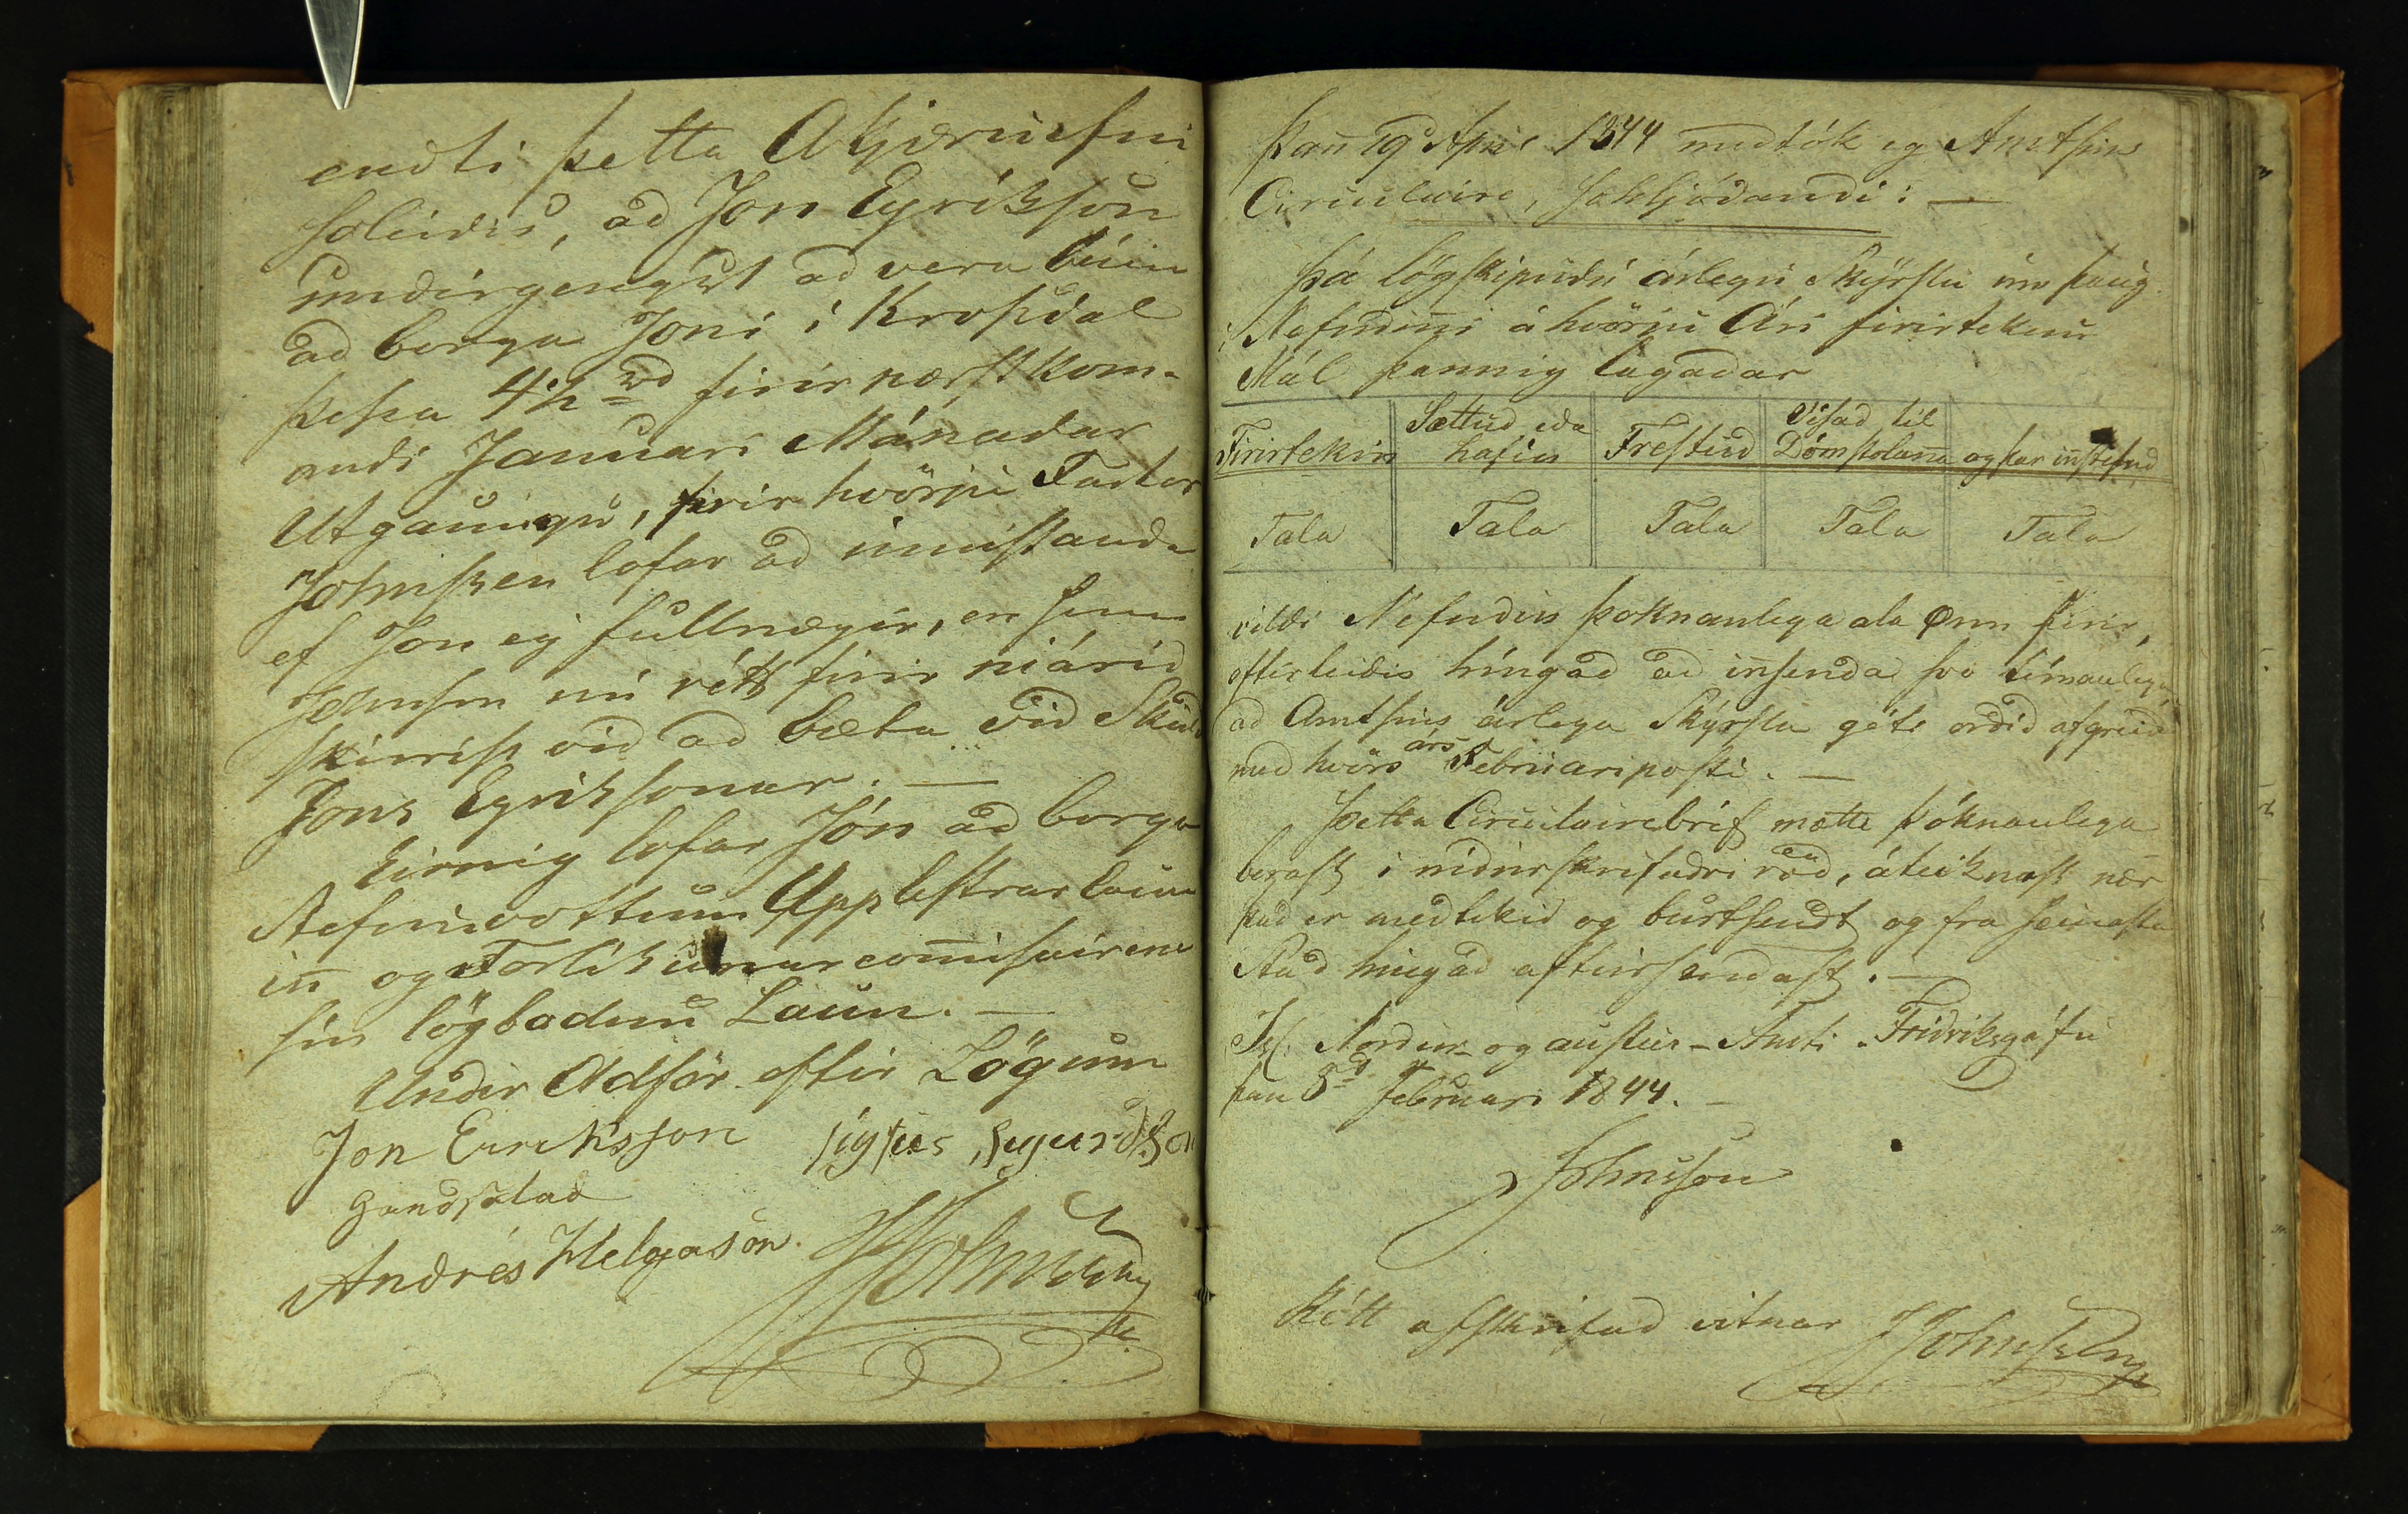 endti þetta Akjæruefni
soleidis, ad Jon Eyriksson
undirgengist ad vera búin
ad borga Joni i Krossdal
þessa 4 rd firir næstkom-
andi Januari Mánadar
Utgaungu, firir hvörju Factor
Johnssen lofar ad innistanda
ef Jon ej fullnægir, en
Johnsen rétt firir niárid
vid ad bæta vid
Jons Eyrikssonar. —
Einnig lofar Jón ad borga
Stefnuvottum Upplestrarlaun
in̄ og Forlikunarcom̄isairene
sin lögbodnu Laun. —
Undir Adför eftir Lögum
Jon Eiriksson sigfus sigurdsson
Handsalad
Andrés Helgason. JJohnsen
Þan̄ 19d April 1844 medtók eg Amtsins
Circulaire, sohljódandi: —
Þá lögskipudu árlegu Skyrslu um þaug
i Nefndin̄i á hvörju Ári firirtekin
Mál þannig lagadar
Firirtekin Sættud eda hafin Frestud Visad til Dómstolan̄a og þar in̄stefnd
Tala Tala Tala Tala Tala
vildi Nefndin þoknanlega ala Ønn firir,
eftirleidis hingad ad in̄senda svo tímanlega
ad Amtsins árlega Skyrsla géti ordid afgreid
med hvörs árs Februaripósti. —
Þetta Circulairebréf mætti þóknanlega
berast i nidurskrifadri röd, áteiknast nær
þad er medtekid og burtsendt og fra seinasta
Stad hingad afturs endast. —
Isl. Nordur- og austur-Amti. Fridriksgáfu
þan 8d Februari 1844. —
Johnsson
Rétt afskrifad vitnar JJohnsen